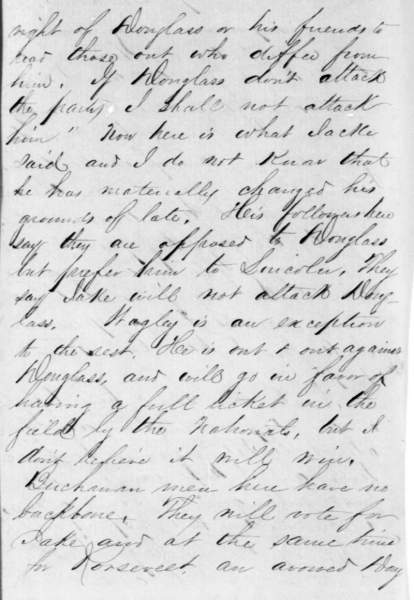 right of Douglass or his friends to
read those out who differ from
him. If Douglass don't attack
the party I shall not attack
him." Now here is what Jake
said and I do not know that
he has materially changed his
grounds of late. His followers here
say they are opposed to Douglass
but prefer him to Lincoln. They
say Jake will not attack Doug-
lass. Wagley is an exception
to the rest. He is out & out against
Douglass, and will go in favor of
having a full ticket in the
field by the Nationals, but I
don't believe it will win.
Buchanan men here have no
backbone. They will vote for
Jake and at the same time
for Roosevelt an avowed Doug